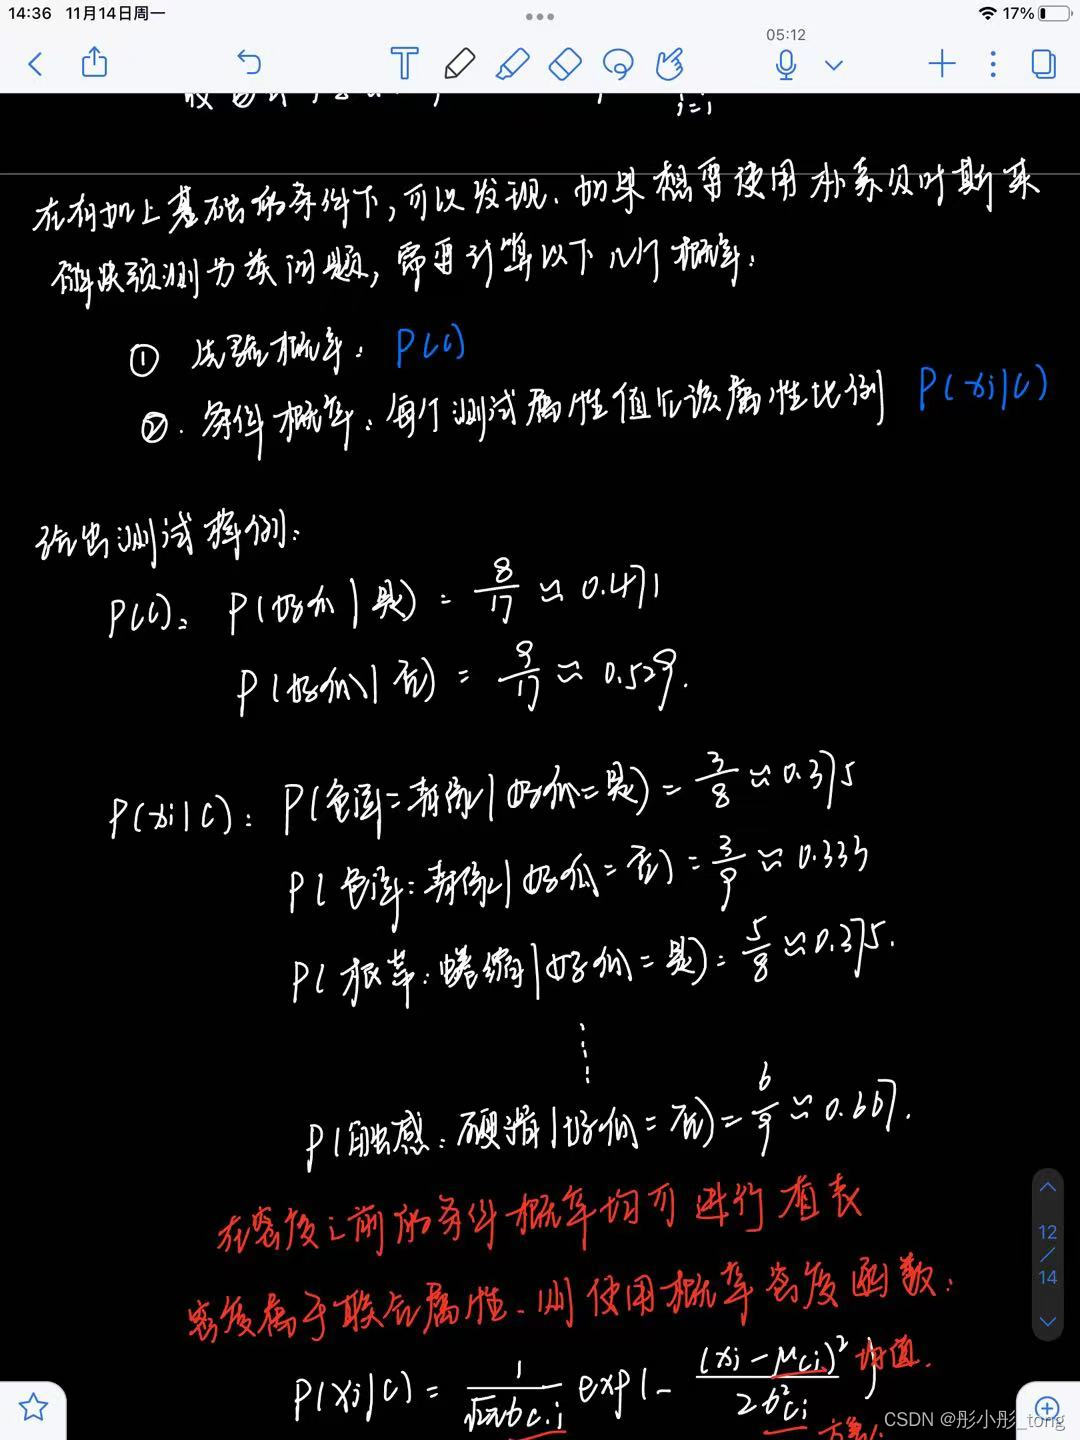 14:36 11月14日周一
17%
05:12
i=i
在有如上基础的条件下,可以发现.如果想要使用朴素贝叶斯来
解决预测分类问题,需要计算以下几个概率:
① 先验概率: P(C)
②. 条件概率:每个测试属性值占该属性比例 P(xi|C)
给出测试样例:
P(C): P(好瓜|是) = 8/17 ≈ 0.471
P(好瓜|否) = 9/17 ≈ 0.529.
P(xi|C): P(色泽=青绿|好瓜=是) = 3/8 ≈ 0.375
P(色泽:青绿|好瓜=否) = 3/9 ≈ 0.333
P(根蒂:蜷缩|好瓜=是) = 5/8 ≈ 0.375.
P(触感:硬滑|好瓜=否) = 6/9 ≈ 0.667.
在密度之前的条件概率均可进行查表
密度属于联合属性.则使用概率密度函数:
P(xi|C) = 1/√2πσc,i exp(-(xi-μci)²/2σ²ci) 均值.
方差
12
/
14
CSDN @彤小彤_tong